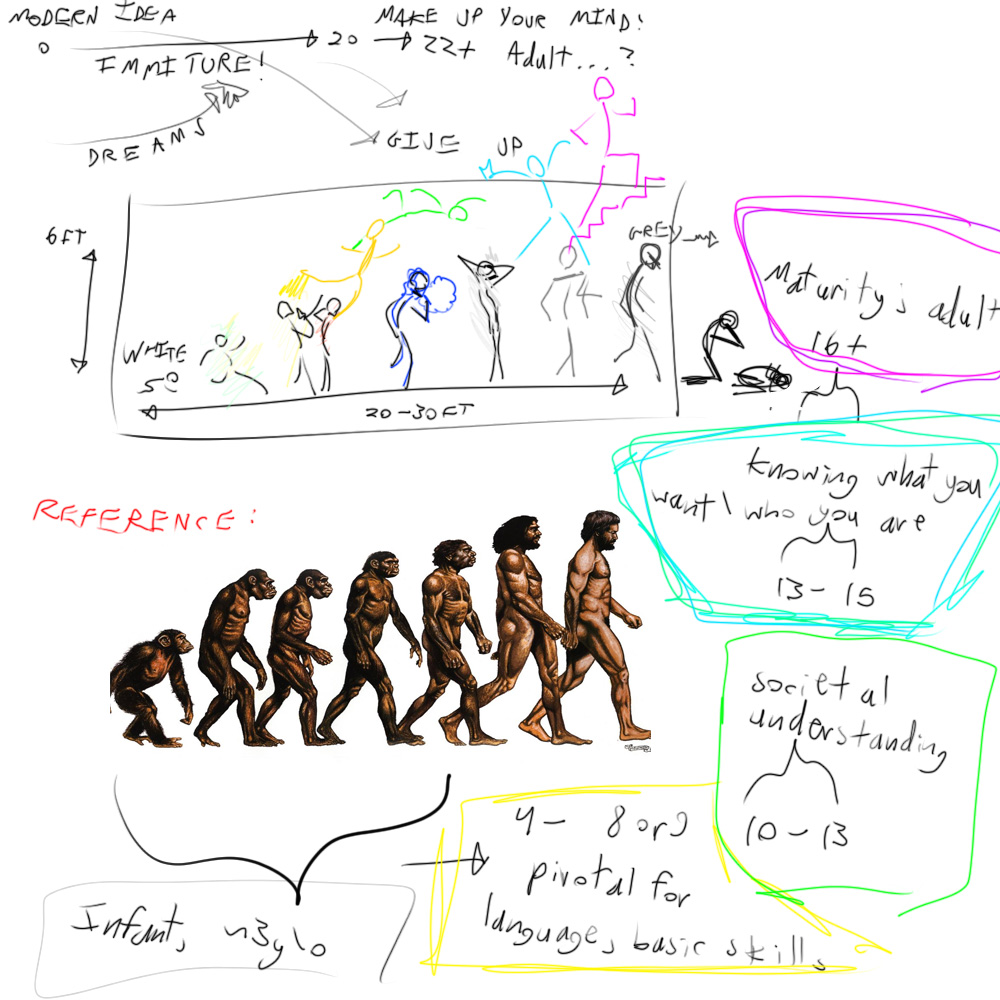 MODERN IDEA
MAKE UP YOUR MIND!
0
20
22+ Adult...?
IMMITURE!
DREAMS
GIVE UP
6FT
GREY
WHITE
20-30FT
Maturity, adult
16+
knowing what you
want \ who you are
13-15
REFERENCE:
societal
understanding
10-13
4- 8 or 9
pivotal for
languages, basic skills
Infant, ~3y/o